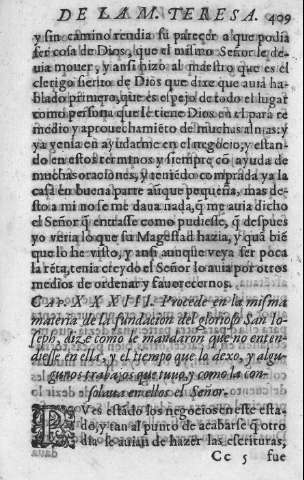 DE LA M. TERESA. 409
y sin camino rendia su pareçer a que podia
ser cosa de Dios, que el mismo Señor le de-
uia mouer, y ansi hizo al maestro que es el
clerigo sieruo de Dios que dixe que auia ha-
blado primero, que es espejo de todo el lugar
como persona que le tiene Dios en el para re
medio y aprouechamiẽto de muchas almas: y
ya venia en ayudarme en el negocio, y estan-
do en estos terminos y siempre cõ ayuda de
muchas oraciones, y teniẽdo comprada ya la
casa en buena parte aũque pequeña, mas de-
sto a mi no se me daua nada, q̃ me auia dicho
el Señor q̃ entrasse como pudiesse, q̃ despues
yo veria lo que su Magestad hazia, y quã biẽ
que lo he visto, y ansi aunque veya ser poca
la rẽta, tenia creydo el Señor lo auia por otros
medios de ordenar y fauorecernos.
CAP. XXXIII. Procede en la misma
materia de la fundacion del glorioso San Io-
seph, dize como le mandaron que no enten-
diesse en ella, y el tiempo que lo dexo, y algu-
gunos trabajos que tuuo, y como la con-
solaua en ellos el Señor.
PVes estãdo los negocios en este esta-
do, y tan al punto de acabarse q̃ otro
dia se auian de hazer las escrituras,
Cc 5 fue